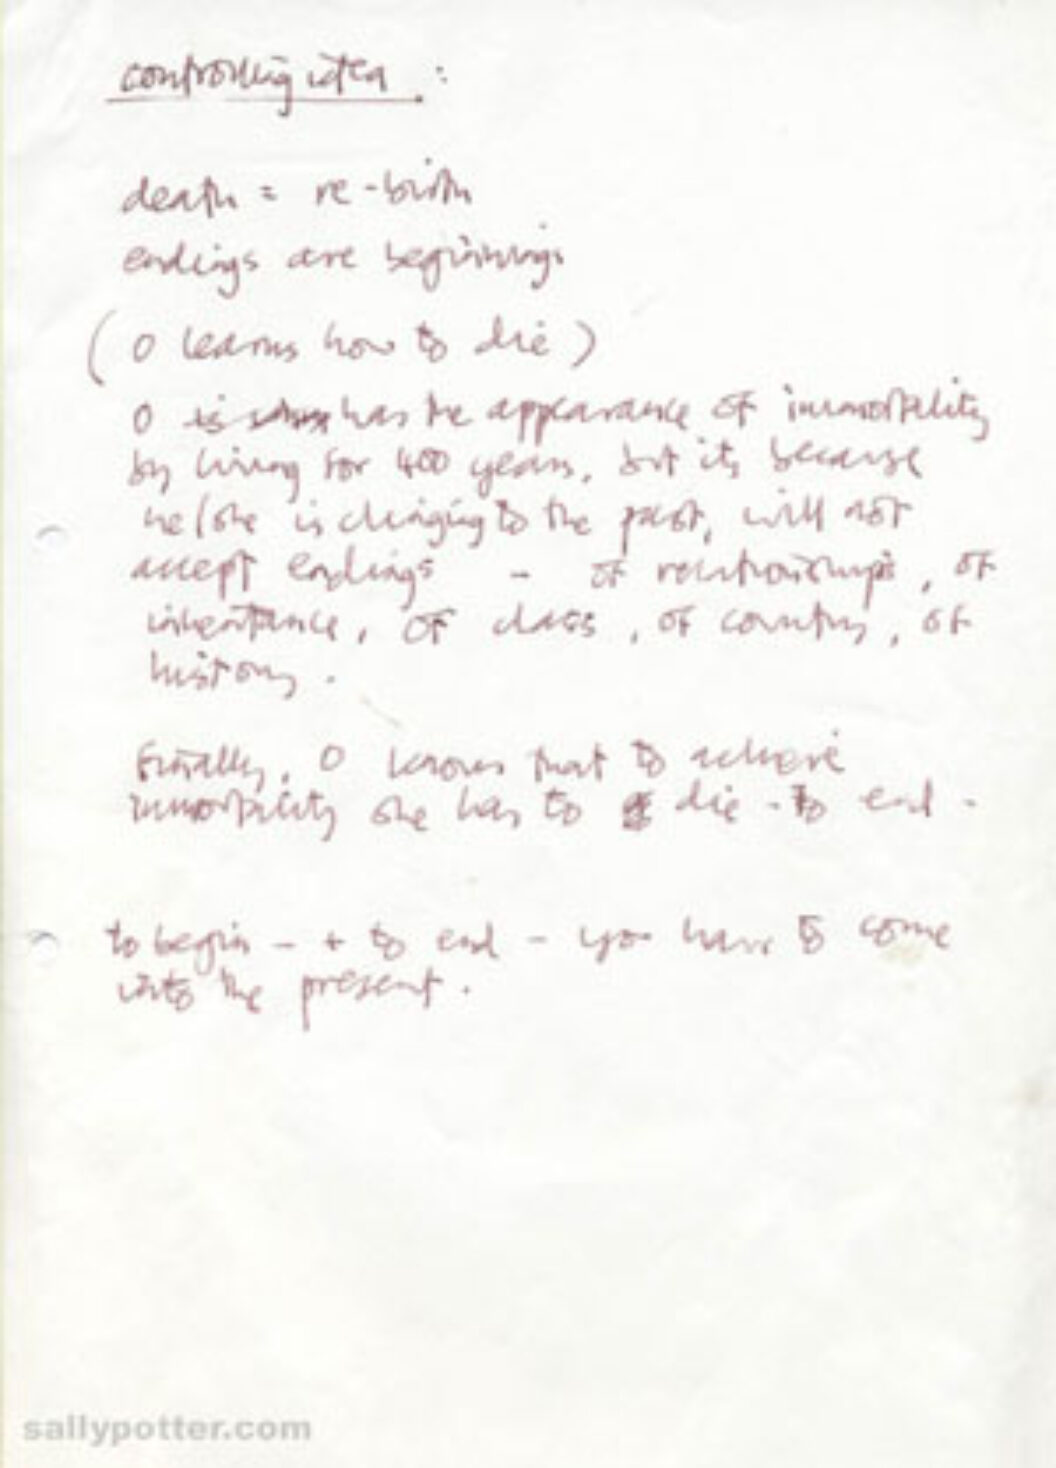 controlling idea :
death = re-birth
endings are beginnings
( O learns how to die )
O is has the appearance of immortality
by living for 400 years, but its because
he/she is clinging to the past, will not
accept endings - of relationships, of
inheritance, of class, of country, of
history.
Finally, O knows that to achieve
immortality she has to die - to end -
to begin - + to end - you have to come
into the present.
sallypotter.com